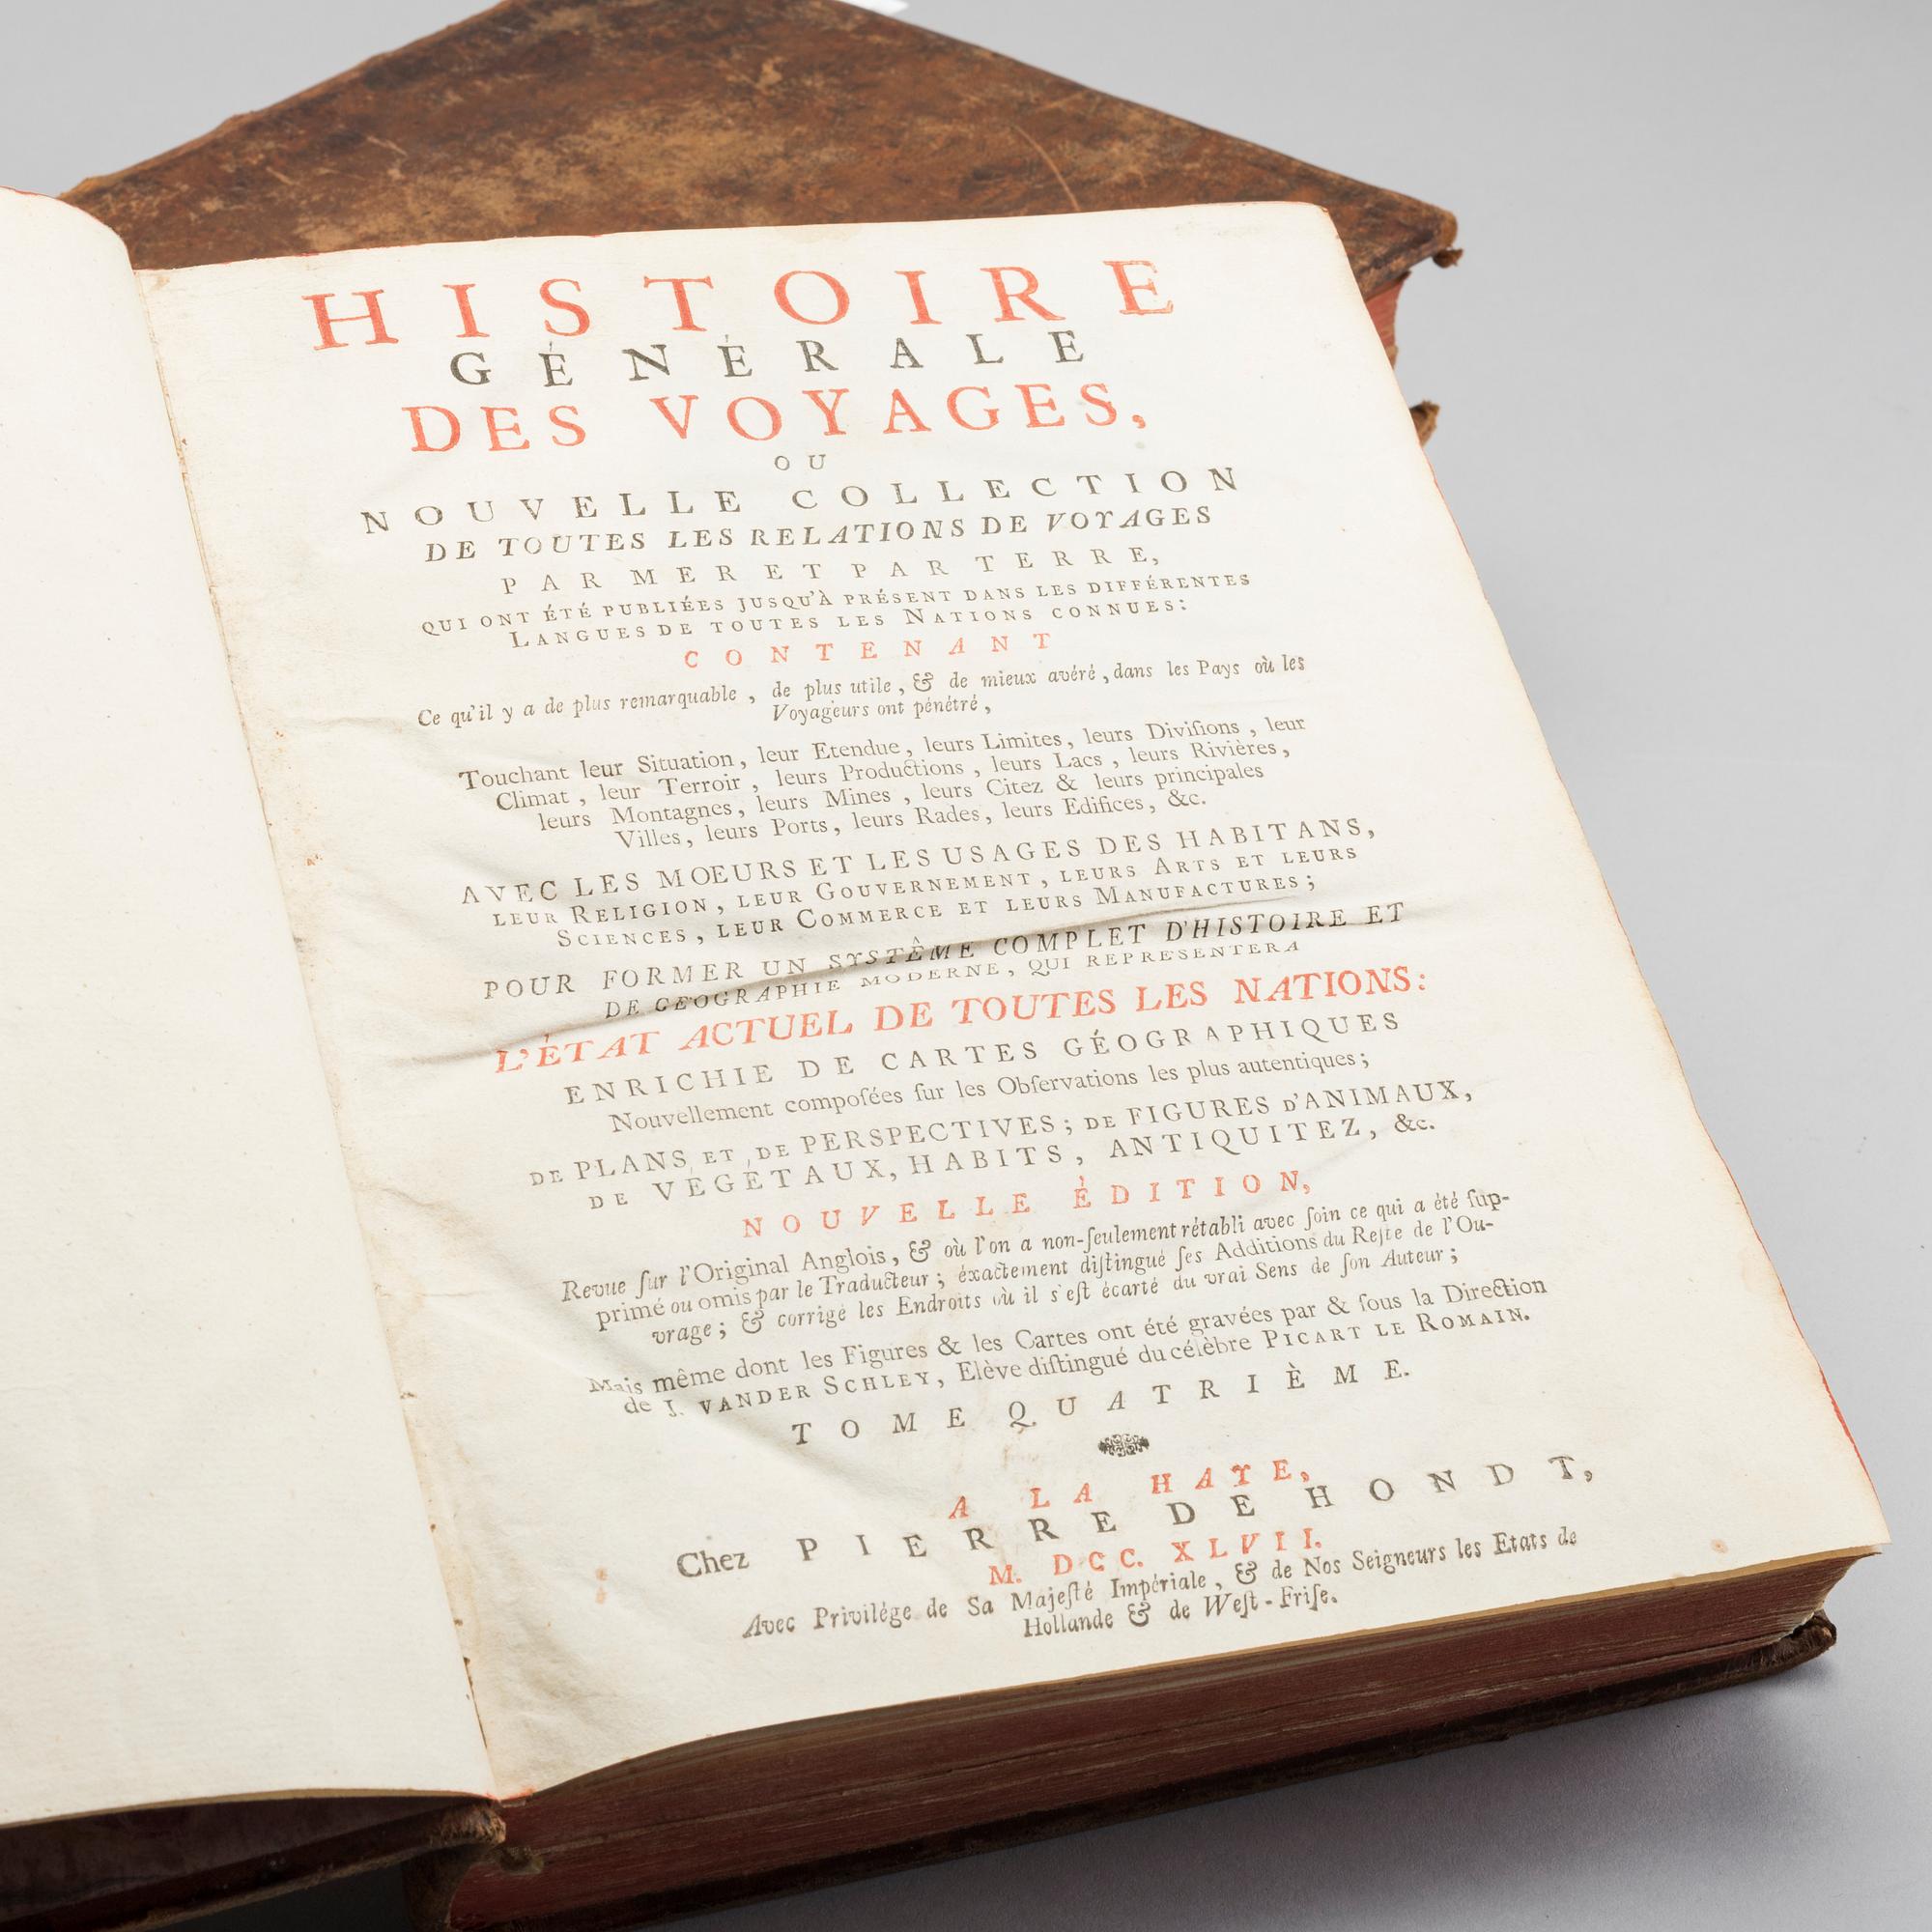 HISTOIRE
GÉNÉRALE
DES VOYAGES,
OU
NOUVELLE COLLECTION
DE TOUTES LES RELATIONS DE VOYAGES
PAR MER ET PAR TERRE,
QUI ONT ÉTÉ PUBLIÉES JUSQU'À PRÉSENT DANS LES DIFFÉRENTES
LANGUES DE TOUTES LES NATIONS CONNUES:
CONTENANT
Ce qu'il y a de plus remarquable, de plus utile, & de mieux avéré, dans les Pays où les
Voyageurs ont pénétré,
Touchant leur Situation, leur Etendue, leurs Limites, leurs Diviſions, leur
Climat, leur Terroir, leurs Productions, leurs Lacs, leurs Rivières,
leurs Montagnes, leurs Mines, leurs Citez & leurs principales
Villes, leurs Ports, leurs Rades, leurs Edifices, &c.
AVEC LES MOEURS ET LES USAGES DES HABITANS,
LEUR RELIGION, LEUR GOUVERNEMENT, LEURS ARTS ET LEURS
SCIENCES, LEUR COMMERCE ET LEURS MANUFACTURES;
POUR FORMER UN SYSTÊME COMPLET D'HISTOIRE ET
DE GÉOGRAPHIE MODERNE, QUI REPRESENTERA
L'ÉTAT ACTUEL DE TOUTES LES NATIONS:
ENRICHIE DE CARTES GÉOGRAPHIQUES
Nouvellement compoſées ſur les Obſervations les plus autentiques;
DE PLANS ET DE PERSPECTIVES; DE FIGURES D'ANIMAUX,
DE VÉGÉTAUX, HABITS, ANTIQUITEZ, &c.
NOUVELLE ÉDITION,
Revue ſur l'Original Anglois, & où l'on a non-ſeulement rétabli avec ſoin ce qui a été ſup-
primé ou omis par le Traducteur; éxactement diſtingué ſes Additions du Reſte de l'Ou-
vrage; & corrigé les Endroits où il s'eſt écarté du vrai Sens de ſon Auteur;
Mais même dont les Figures & les Cartes ont été gravées par & ſous la Direction
de J. VANDER SCHLEY, Elève diſtingué du célèbre PICART LE ROMAIN.
TOME QUATRIÈME.
A LA HAYE,
Chez PIERRE DE HONDT,
M. DCC. XLVII.
Avec Privilége de Sa Majeſté Impériale, & de Nos Seigneurs les Etats de
Hollande & de Weſt-Friſe.